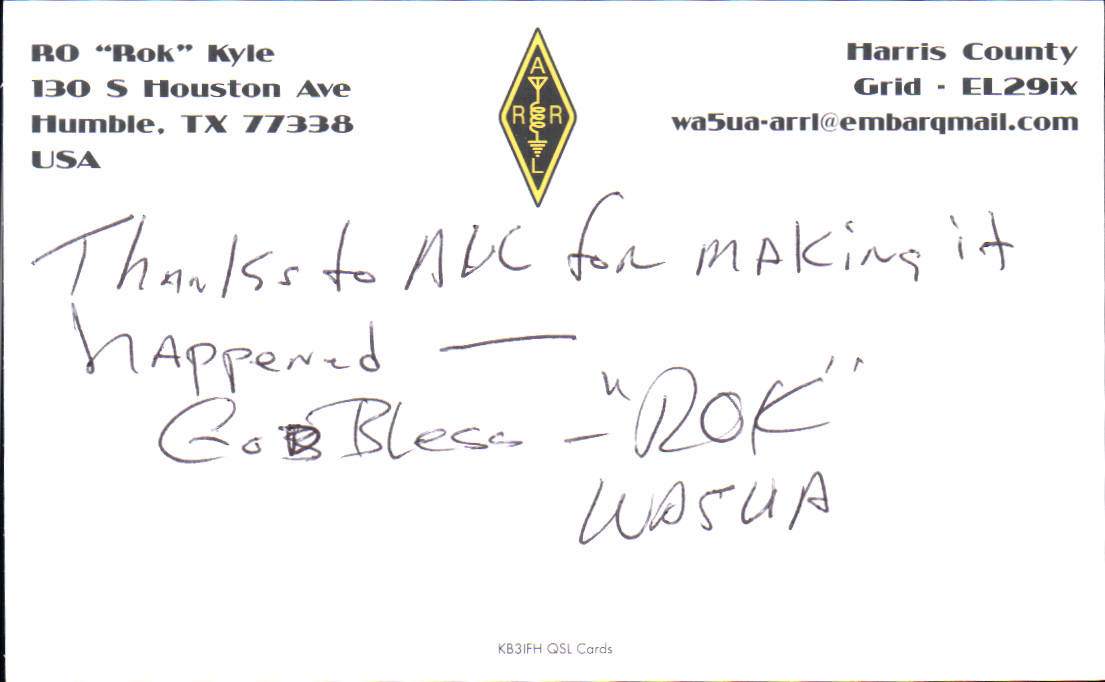 RO “Rok” Kyle
130 S Houston Ave
Humble, TX 77338
USA
A
R R
L
Harris County
Grid - EL29ix
wa5ua-arrl@embarqmail.com
Thanks to ALL for making it
happened —
God Bless - "ROK"
WA5UA
KB3IFH QSL Cards